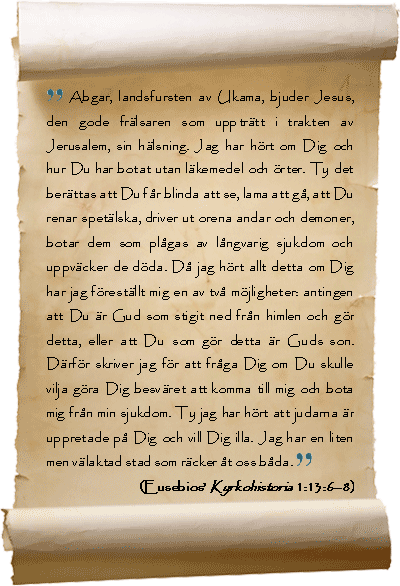 ” Abgar, landsfursten av Ukama, bjuder Jesus,
den gode frälsaren som uppträtt i trakten av
Jerusalem, sin hälsning. Jag har hört om Dig och
hur Du har botat utan läkemedel och örter. Ty det
berättas att Du får blinda att se, lama att gå, att Du
renar spetälska, driver ut orena andar och demoner,
botar dem som plågas av långvarig sjukdom och
uppväcker de döda. Då jag hört allt detta om Dig
har jag föreställt mig en av två möjligheter: antingen
att Du är Gud som stigit ned från himlen och gör
detta, eller att Du som gör detta är Guds son.
Därför skriver jag för att fråga Dig om Du skulle
vilja göra Dig besväret att komma till mig och bota
mig från min sjukdom. Ty jag har hört att judarna är
uppretade på Dig och vill Dig illa. Jag har en liten
men välaktad stad som räcker åt oss båda. ”
(Eusebios’ Kyrkohistoria 1:13:6–8)